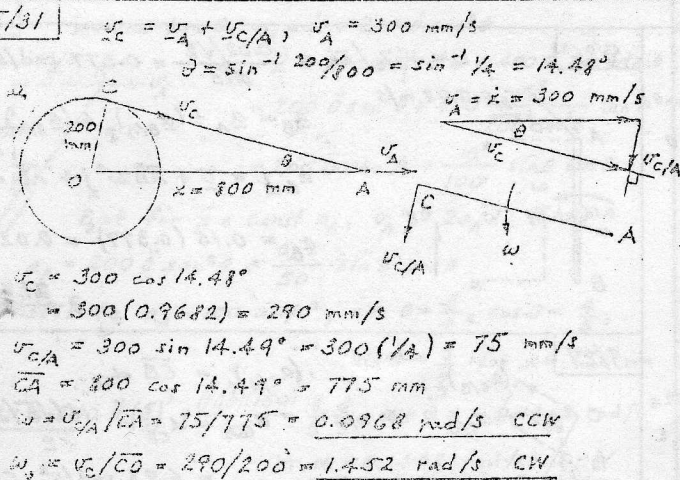 5/31 v_C = v_A + v_C/A, v_A = 300 mm/s
θ = sin⁻¹ 200/800 = sin⁻¹ 1/4 = 14.48°
v_A = ẋ = 300 mm/s
C
ω₀
v_C
200 mm
θ
v_A
O
x = 800 mm
A
θ
v_C
v_C/A
C
v_C/A
ω
A
v_C = 300 cos 14.48°
= 300 (0.9682) = 290 mm/s
v_C/A = 300 sin 14.49° = 300 (1/4) = 75 mm/s
CA = 800 cos 14.49° = 775 mm
ω = v_C/A / CA = 75/775 = 0.0968 rad/s CCW
ω₀ = v_C / CO = 290/200 = 1.452 rad/s CW